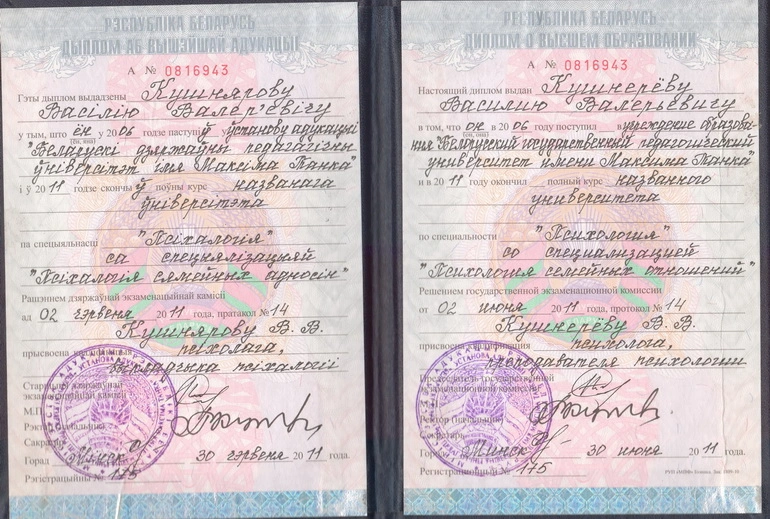 РЭСПУБЛІКА БЕЛАРУСЬ
ДЫПЛОМ АБ ВЫШЭЙШАЙ АДУКАЦЫІ
А № 0816943
Гэты дыплом выдадзены Кушнярову
Васілію Валер'евічу
у тым, што ён у 2006 годзе паступіў ўстанову адукацыі
(ён, яна)
"Беларускі дзяржаўны педагагічны
ўніверсітэт імя Максіма Танка"
і ў 2011 годзе скончыў поўны курс названага
ўніверсітэта
па спецыяльнасці "Псіхалогія"
са спецыялізацыяй
"Псіхалогія сямейных адносін"
Рашэннем дзяржаўнай экзаменацыйнай камісіі
ад 02 чэрвеня 2011 года, пратакол № 14
Кушнярову В. В.
прысвоена кваліфікацыя псіхолага,
выкладчыка псіхалогіі
Старшыня дзяржаўнай
экзаменацыйнай камісіі
М.П.
Рэктар
Сакратар
Горад Мінск 30 чэрвеня 2011 года.
Рэгістрацыйны № 175
РЕСПУБЛИКА БЕЛАРУСЬ
ДИПЛОМ О ВЫСШЕМ ОБРАЗОВАНИИ
А № 0816943
Настоящий диплом выдан Кушнерёву
Василию Валерьевичу
в том, что он в 2006 году поступил в учреждение образова-
(он, она)
ния "Белорусский государственный педагогический
университет имени Максима Танка"
и в 2011 году окончил полный курс названного
университета
по специальности "Психология"
со специализацией
"Психология семейных отношений"
Решением государственной экзаменационной комиссии
от 02 июня 2011 года, протокол № 14
Кушнерёву В. В.
присвоена квалификация психолога,
преподавателя психологии
Председатель государственной
экзаменационной комиссии
М.П.
Ректор (начальник)
Секретарь
Город Минск 30 июня 2011 года.
Регистрационный № 175